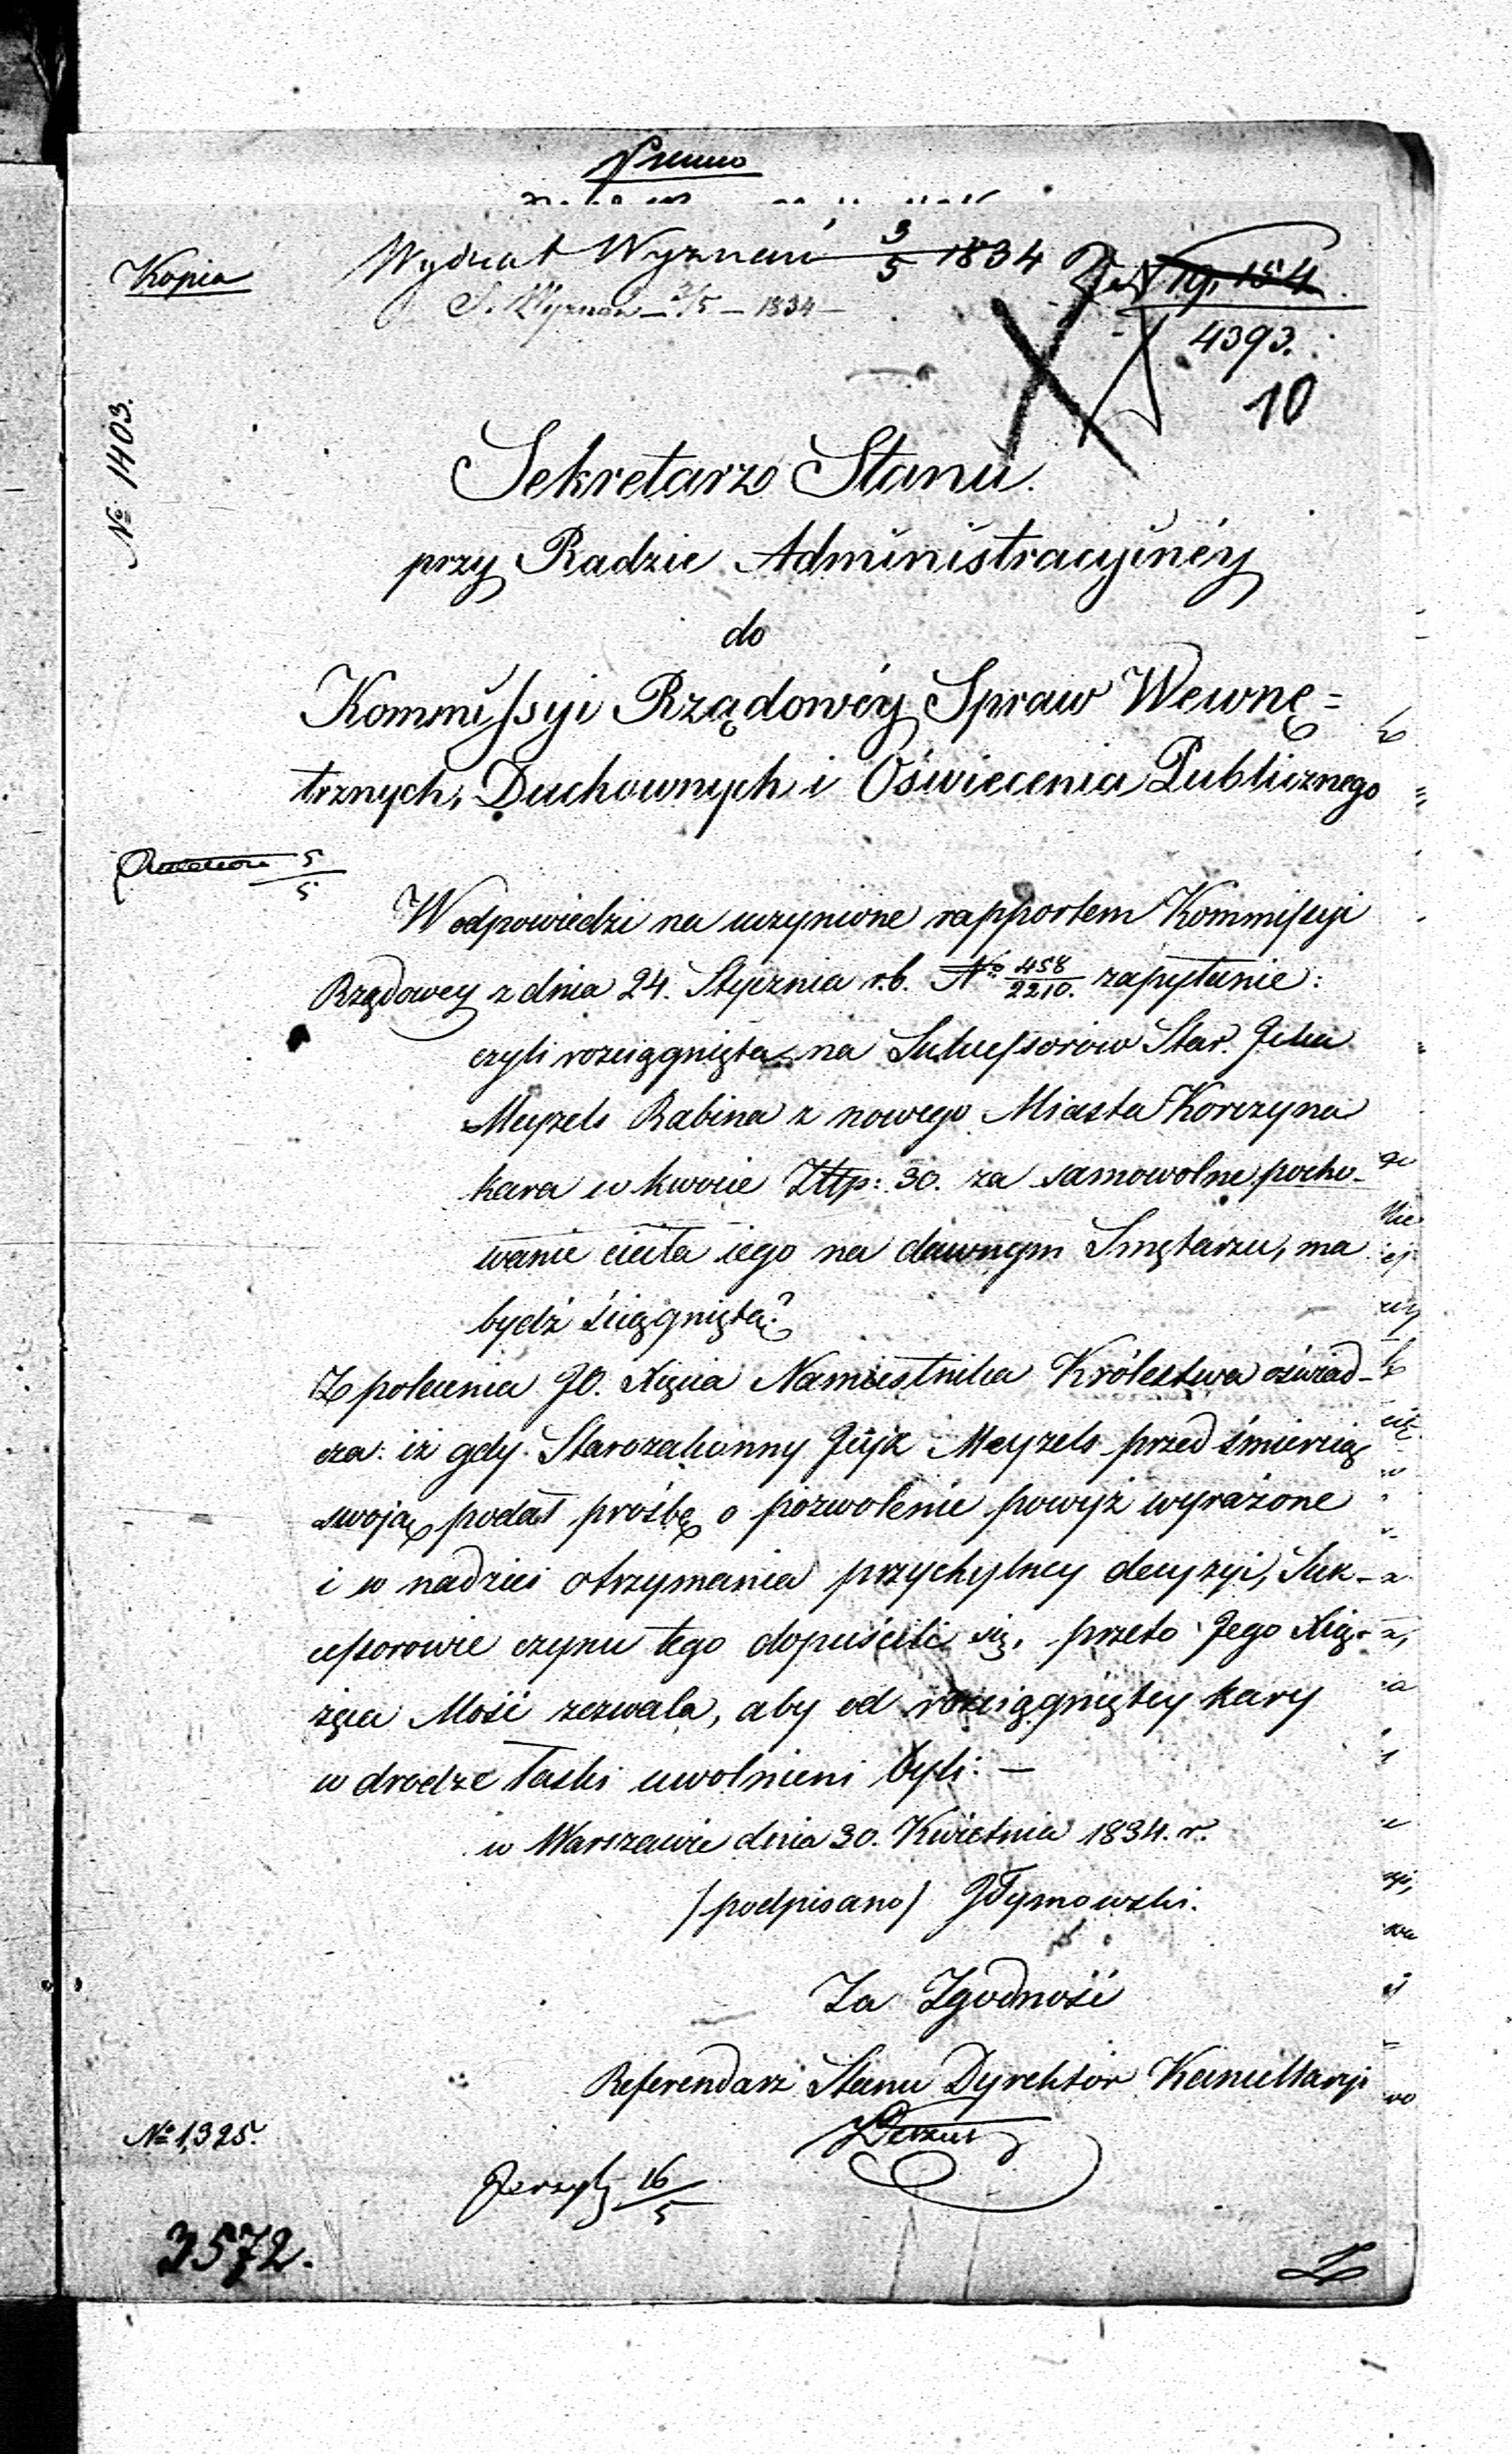 Kopia
Wydział Wyznań 3/5 1834
S. Wyznań – 3/5 – 1834 –
19,154
4393.
10
No 1403.
Sekretarz Stanu.
przy Radzie Administracyinéy
do
Kommissyi Rządowéy Spraw Wewnę=
trznych, Duchownych i Oświecenia Publicznego
5/5
W odpowiedzi na uczynione rapportem Kommissyi
Rządowey z dnia 24. Stycznia r.b. No 458/2210. zapytanie:
czyli rozciągnięta na Sukcessorów Star.
Meyzels Rabina z nowego Miasta Korczyna
kara w kwocie Złtp: 30. za samowolne pocho-
wanie ciała iego na dawnym Smętarzu, ma
bydź ściągniętą?
Z polecenia JO. Xięcia Namiestnika Królestwa oświad-
cza: iż gdy Starozakonny Meyzels przed śmiercią
swoją podał prośbę o pozwolenie powyż wyrażone
i w nadziei otrzymania przychylney decyzyi, Suk-
cessorowie czynu tego dopuścili się, przeto Jego Xią-
żęca Mość zezwala, aby od rozciągniętey kary
w drodze łaski uwolnieni byli: –
w Warszawie dnia 30. Kwietnia 1834. r.
/podpisano/ JTymowski.
Za Zgodność
Referendarz Stanu Dyrektor Kancellaryi
No 1,325.
16/5
3572.